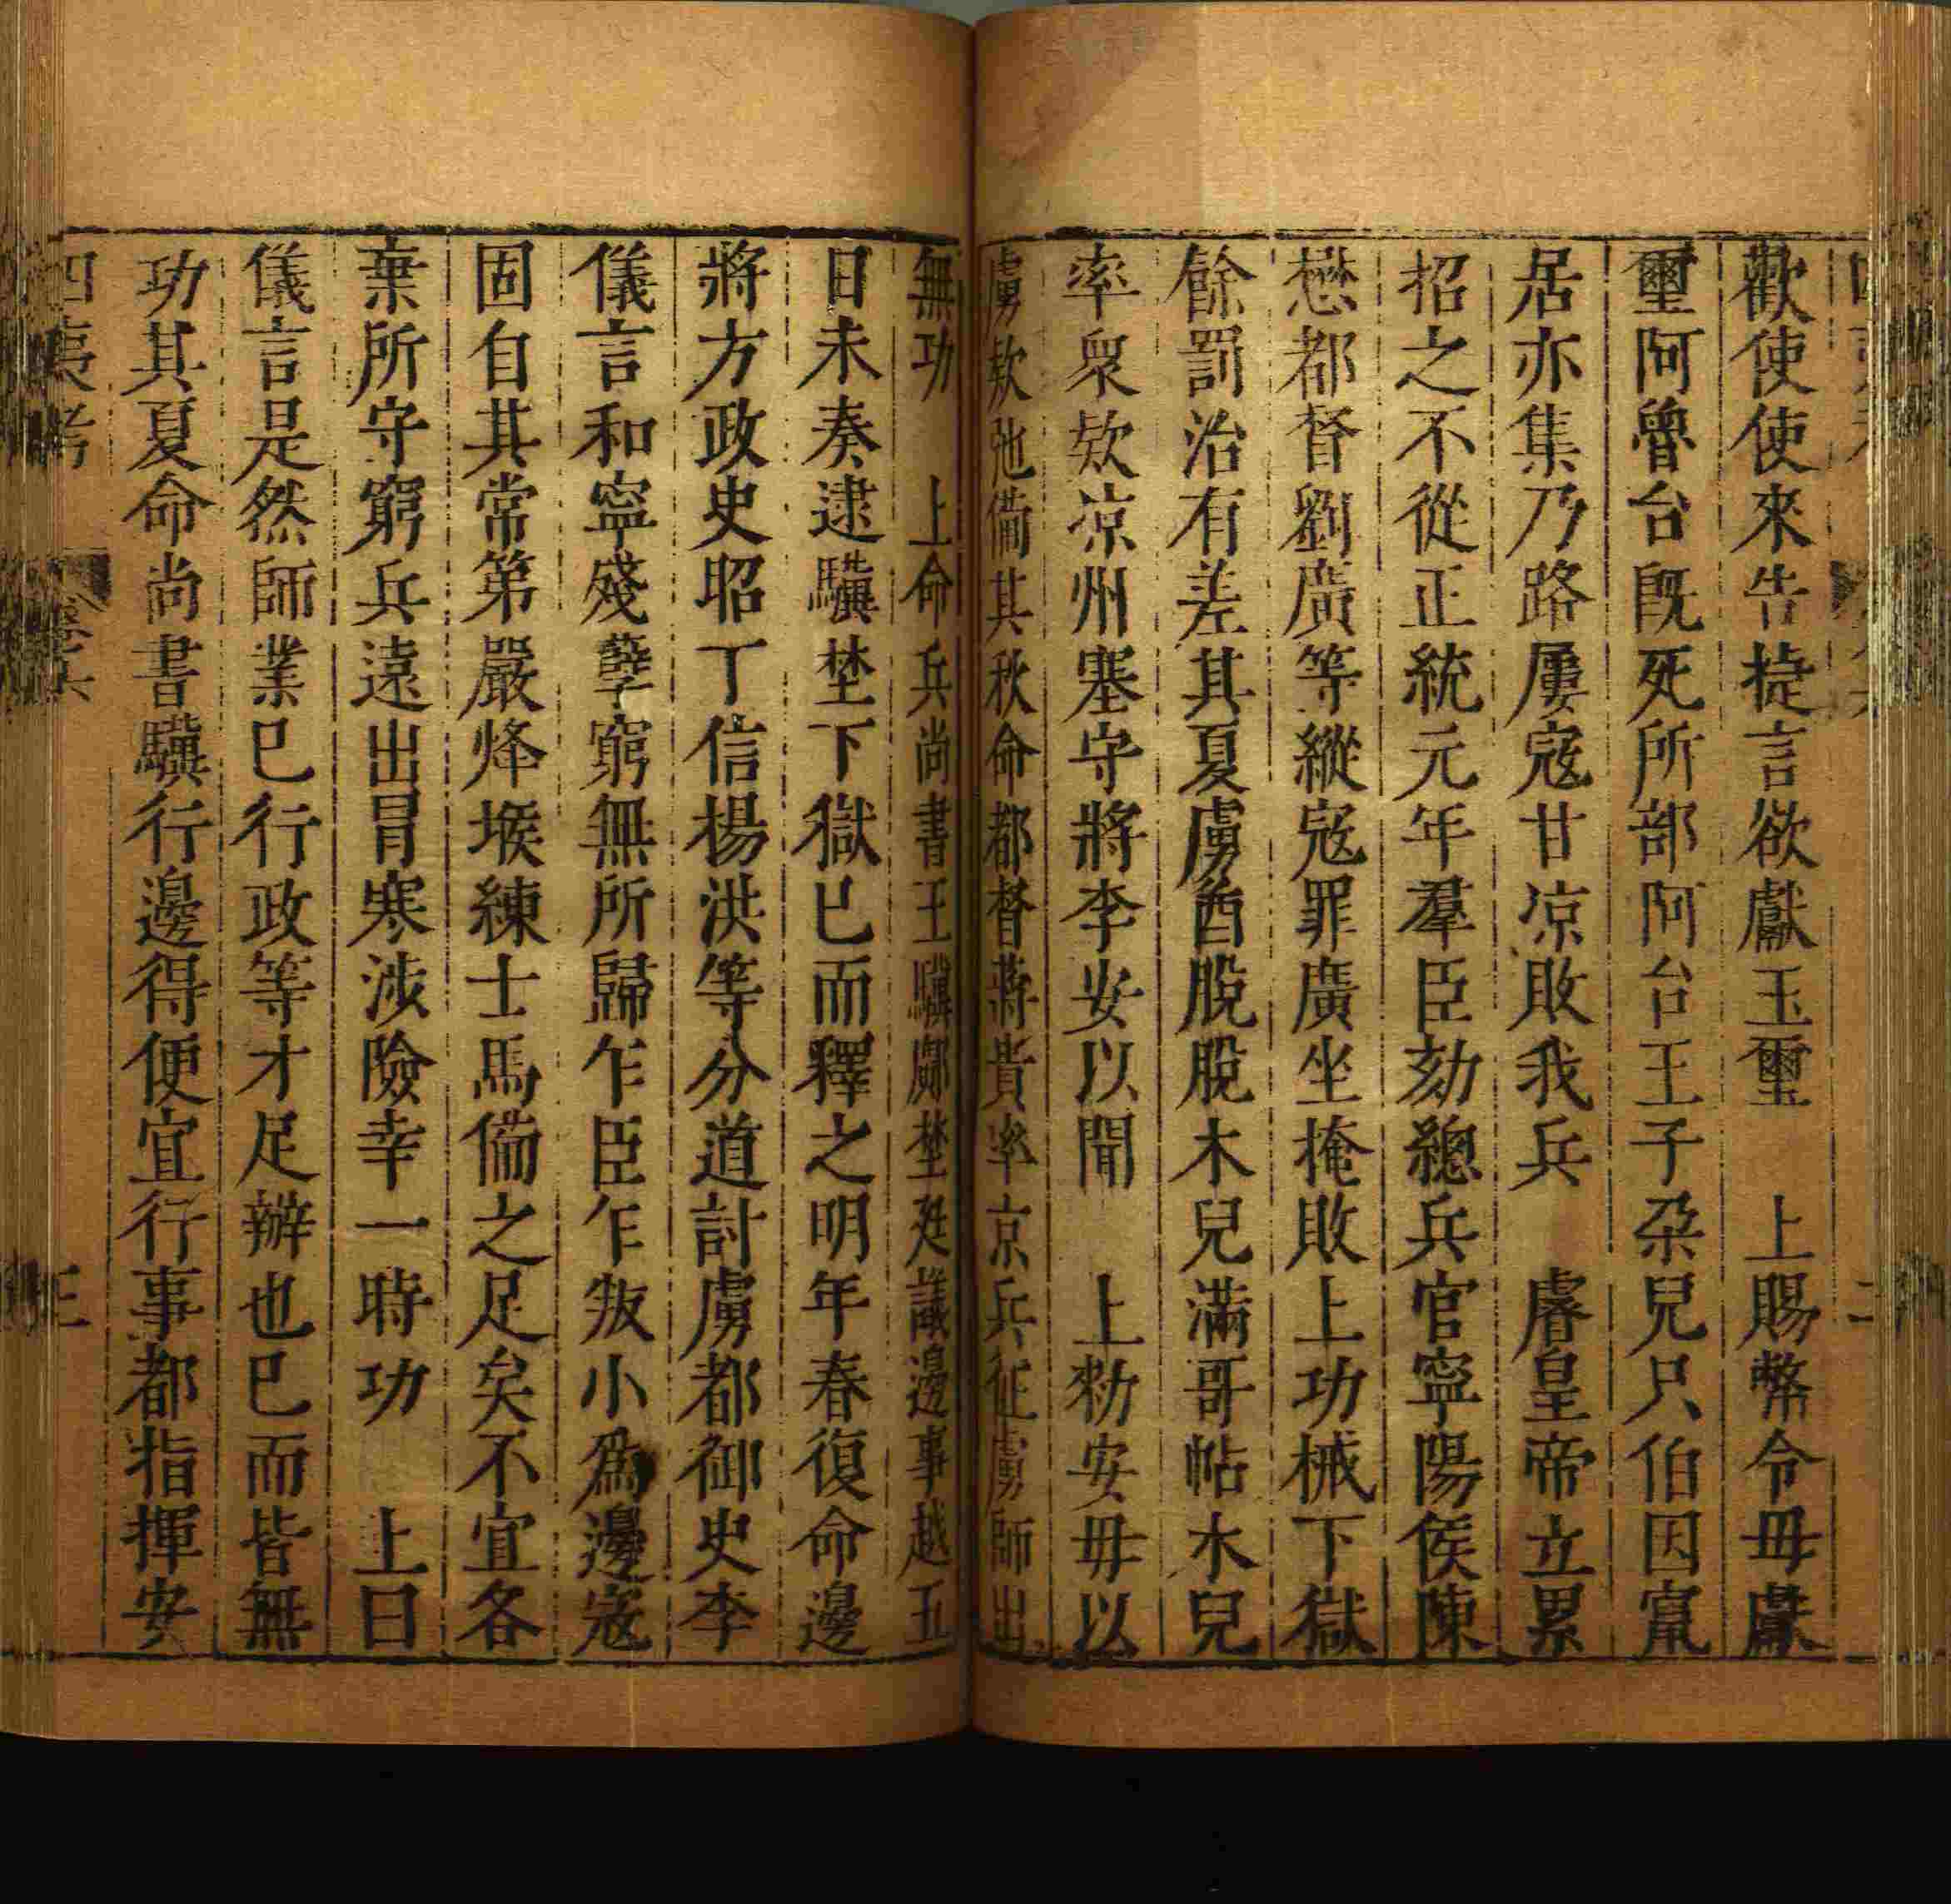 歡使使來告捷言欲獻玉璽　上賜幣令毋獻
璽阿魯台既死所部阿台王子朶兒只伯因竄
居亦集乃路屢寇甘凉敗我兵　睿皇帝立累
招之不從正統元年羣臣劾總兵官寧陽侯陳
懋都督劉廣等縱寇罪廣坐掩敗上功械下獄
餘罰治有差其夏虜酋脫脫木兒滿哥帖木兒
率衆欵凉州塞守將李安以聞　上勑安毋以
虜欵弛備其秋命都督蔣貴率京兵征虜師出
無功　上命兵尚書王驥鄺埜廷議邊事越五
日未奏逮驥埜下獄已而釋之明年春復命邊
將方政史昭丁信楊洪等分道討虜都御史李
儀言和寧殘孽窮無所歸乍臣乍叛小爲邊寇
固自其常第嚴烽堠練士馬備之足矣不宜各
棄所守窮兵遠出冒寒涉險幸一時功　上曰
儀言是然師業已行政等才足辦也已而皆無
功其夏命尚書驥行邊得便宜行事都指揮安
四夷考